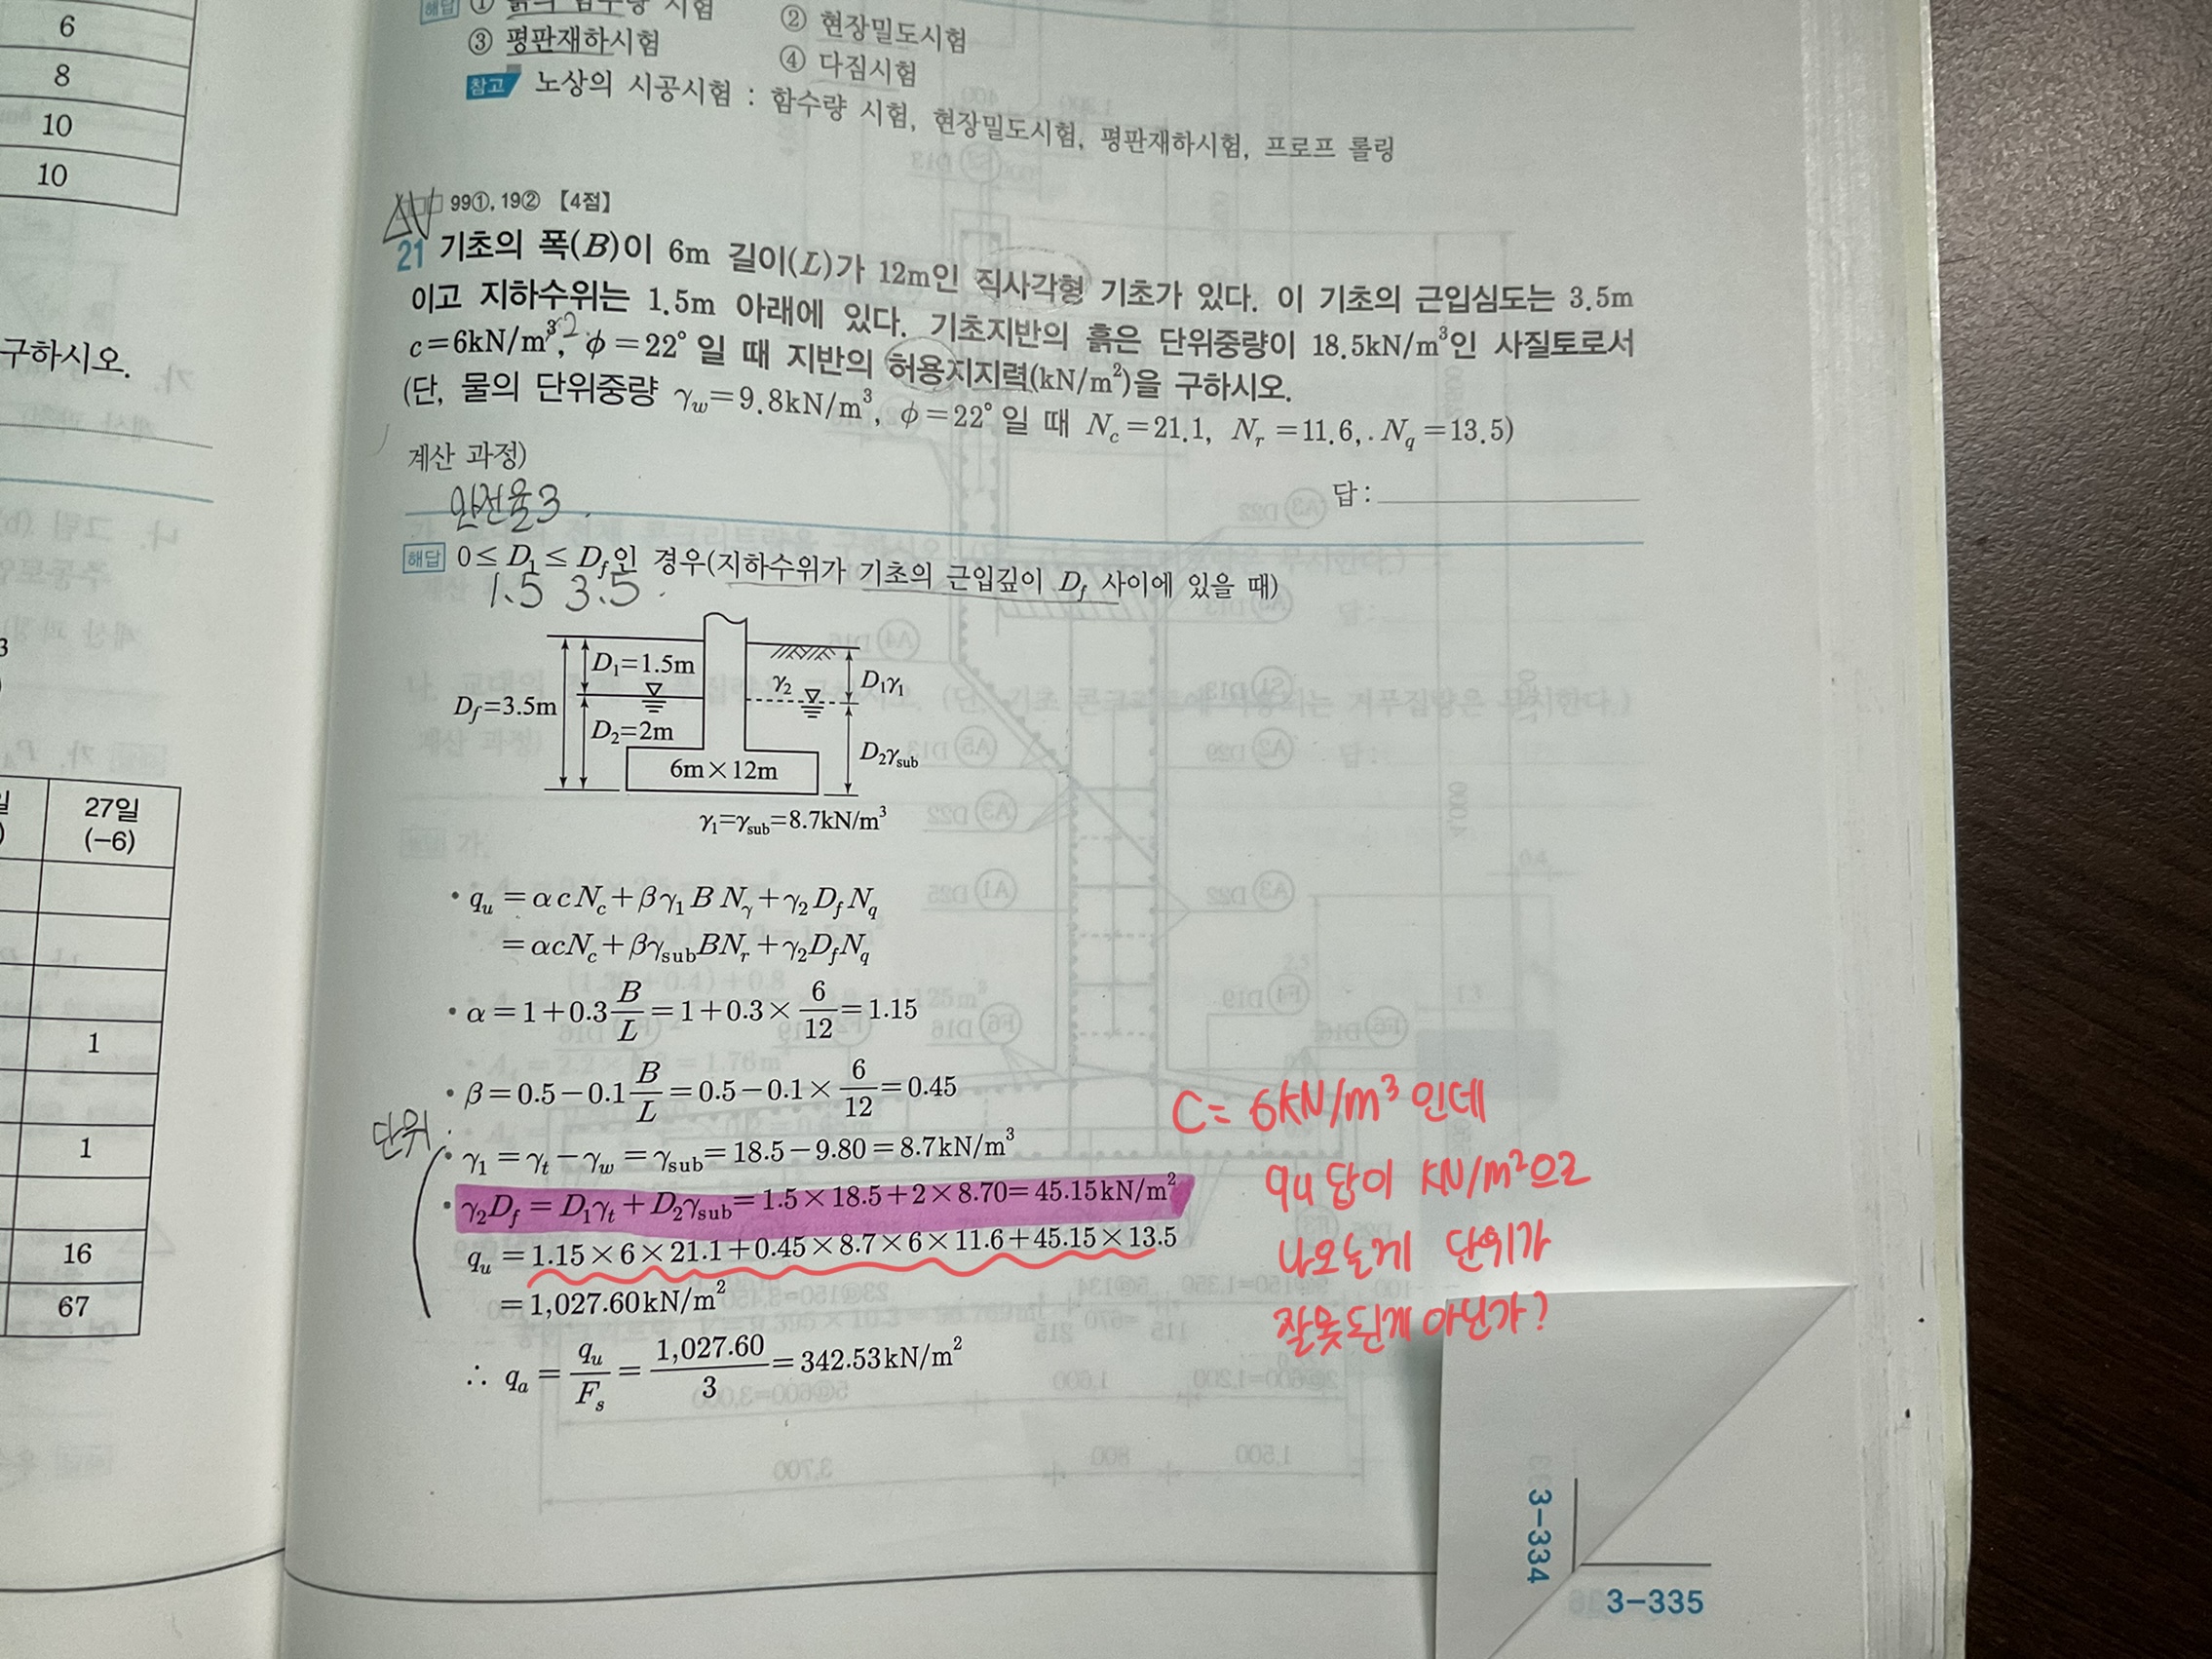 6
8
10
10
구하시오.
27일
(-6)
1
1
16
67
해답 ① 흙의 함수량 시험
② 현장밀도시험
③ 평판재하시험
④ 다짐시험
참고 노상의 시공시험 : 함수량 시험, 현장밀도시험, 평판재하시험, 프로프 롤링
99①, 19② 【4점】
21 기초의 폭(B)이 6m 길이(L)가 12m인 직사각형 기초가 있다. 이 기초의 근입심도는 3.5m
이고 지하수위는 1.5m 아래에 있다. 기초지반의 흙은 단위중량이 18.5kN/m³인 사질토로서
c=6kN/m³, φ=22°일 때 지반의 허용지지력(kN/m²)을 구하시오.
2
(단, 물의 단위중량 γw=9.8kN/m³, φ=22°일 때 Nc=21.1, Nr=11.6, Nq=13.5)
계산 과정)
안전율3
답 :
해답 0≤D₁≤Df인 경우(지하수위가 기초의 근입깊이 Df 사이에 있을 때)
1.5 3.5
D₁=1.5m
Df=3.5m
D₂=2m
6m×12m
γ₂
D₁γ₁
D₂γsub
γ₁=γsub=8.7kN/m³
• qu=αcNc+βγ₁BNγ+γ₂DfNq
=αcNc+βγsubBNr+γ₂DfNq
• α=1+0.3 B/L=1+0.3× 6/12=1.15
• β=0.5-0.1 B/L=0.5-0.1× 6/12=0.45
단위
• γ₁=γt-γw=γsub=18.5-9.80=8.7kN/m³
• γ₂Df=D₁γt+D₂γsub=1.5×18.5+2×8.70=45.15kN/m²
qu=1.15×6×21.1+0.45×8.7×6×11.6+45.15×13.5
=1,027.60kN/m²
∴ qa= qu/Fs = 1,027.60/3 =342.53kN/m²
C= 6kN/m³ 인데
qu 답이 kN/m²으로
나오는게 단위가
잘못된게 아닌가?
3-334
3-335